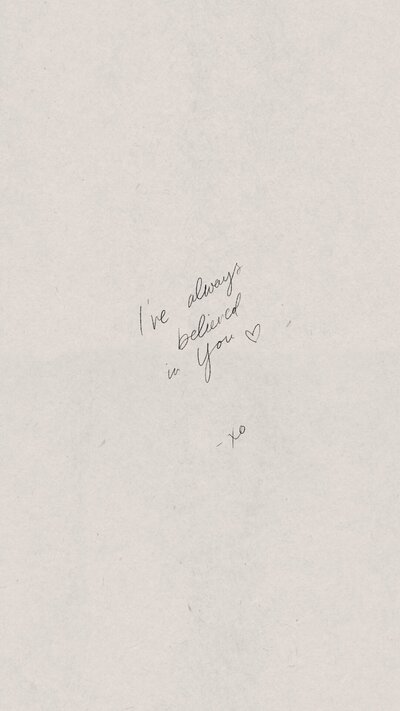 I've always
believed
in You ♡
- xo